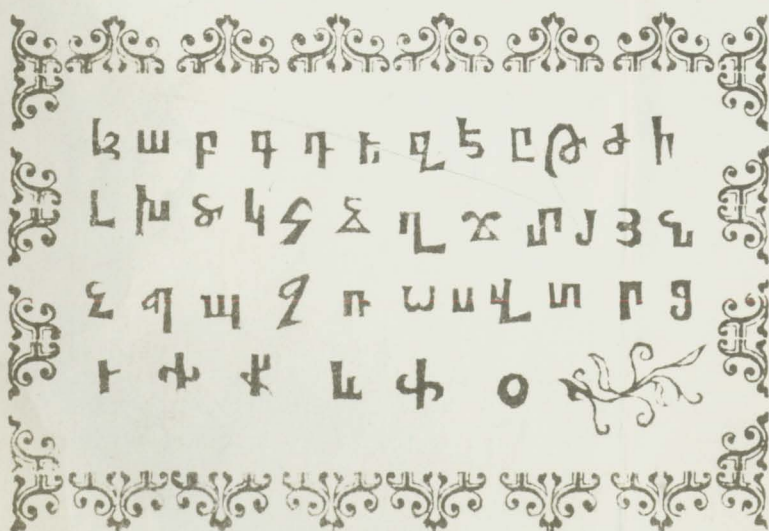 ա բ գ դ ե զ է ը թ ժ ի
լ խ ծ կ հ ձ ղ ճ մ յ յ ն
շ պ ջ ռ ս վ տ ր ց
ւ փ ք և ֆ օ